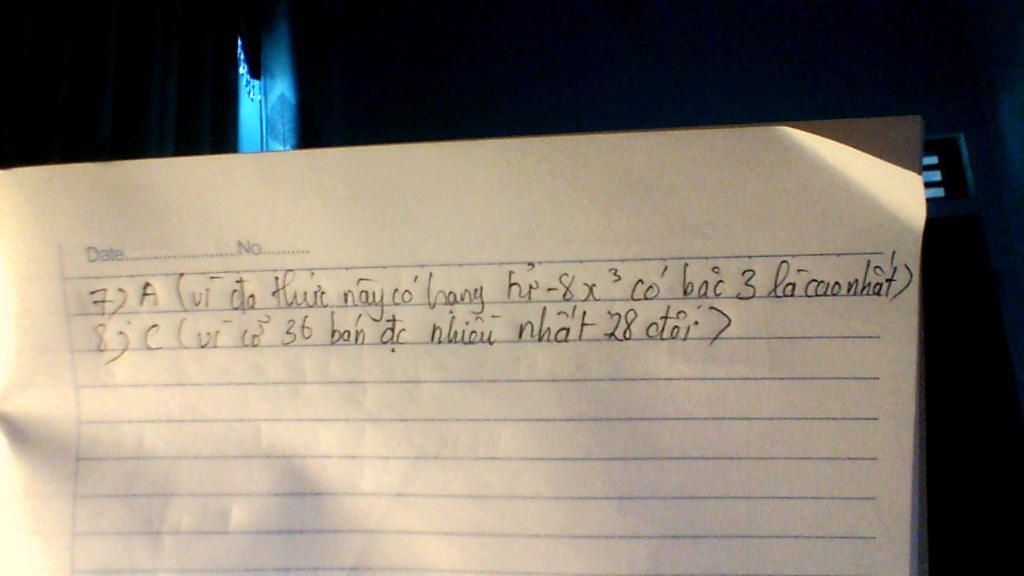 Date.......................No..........
7) A (vì đa thức này có hạng tử -8x³ có bậc 3 là cao nhất)
8) C (vì cỡ 36 bán đc nhiều nhất 28 đôi)